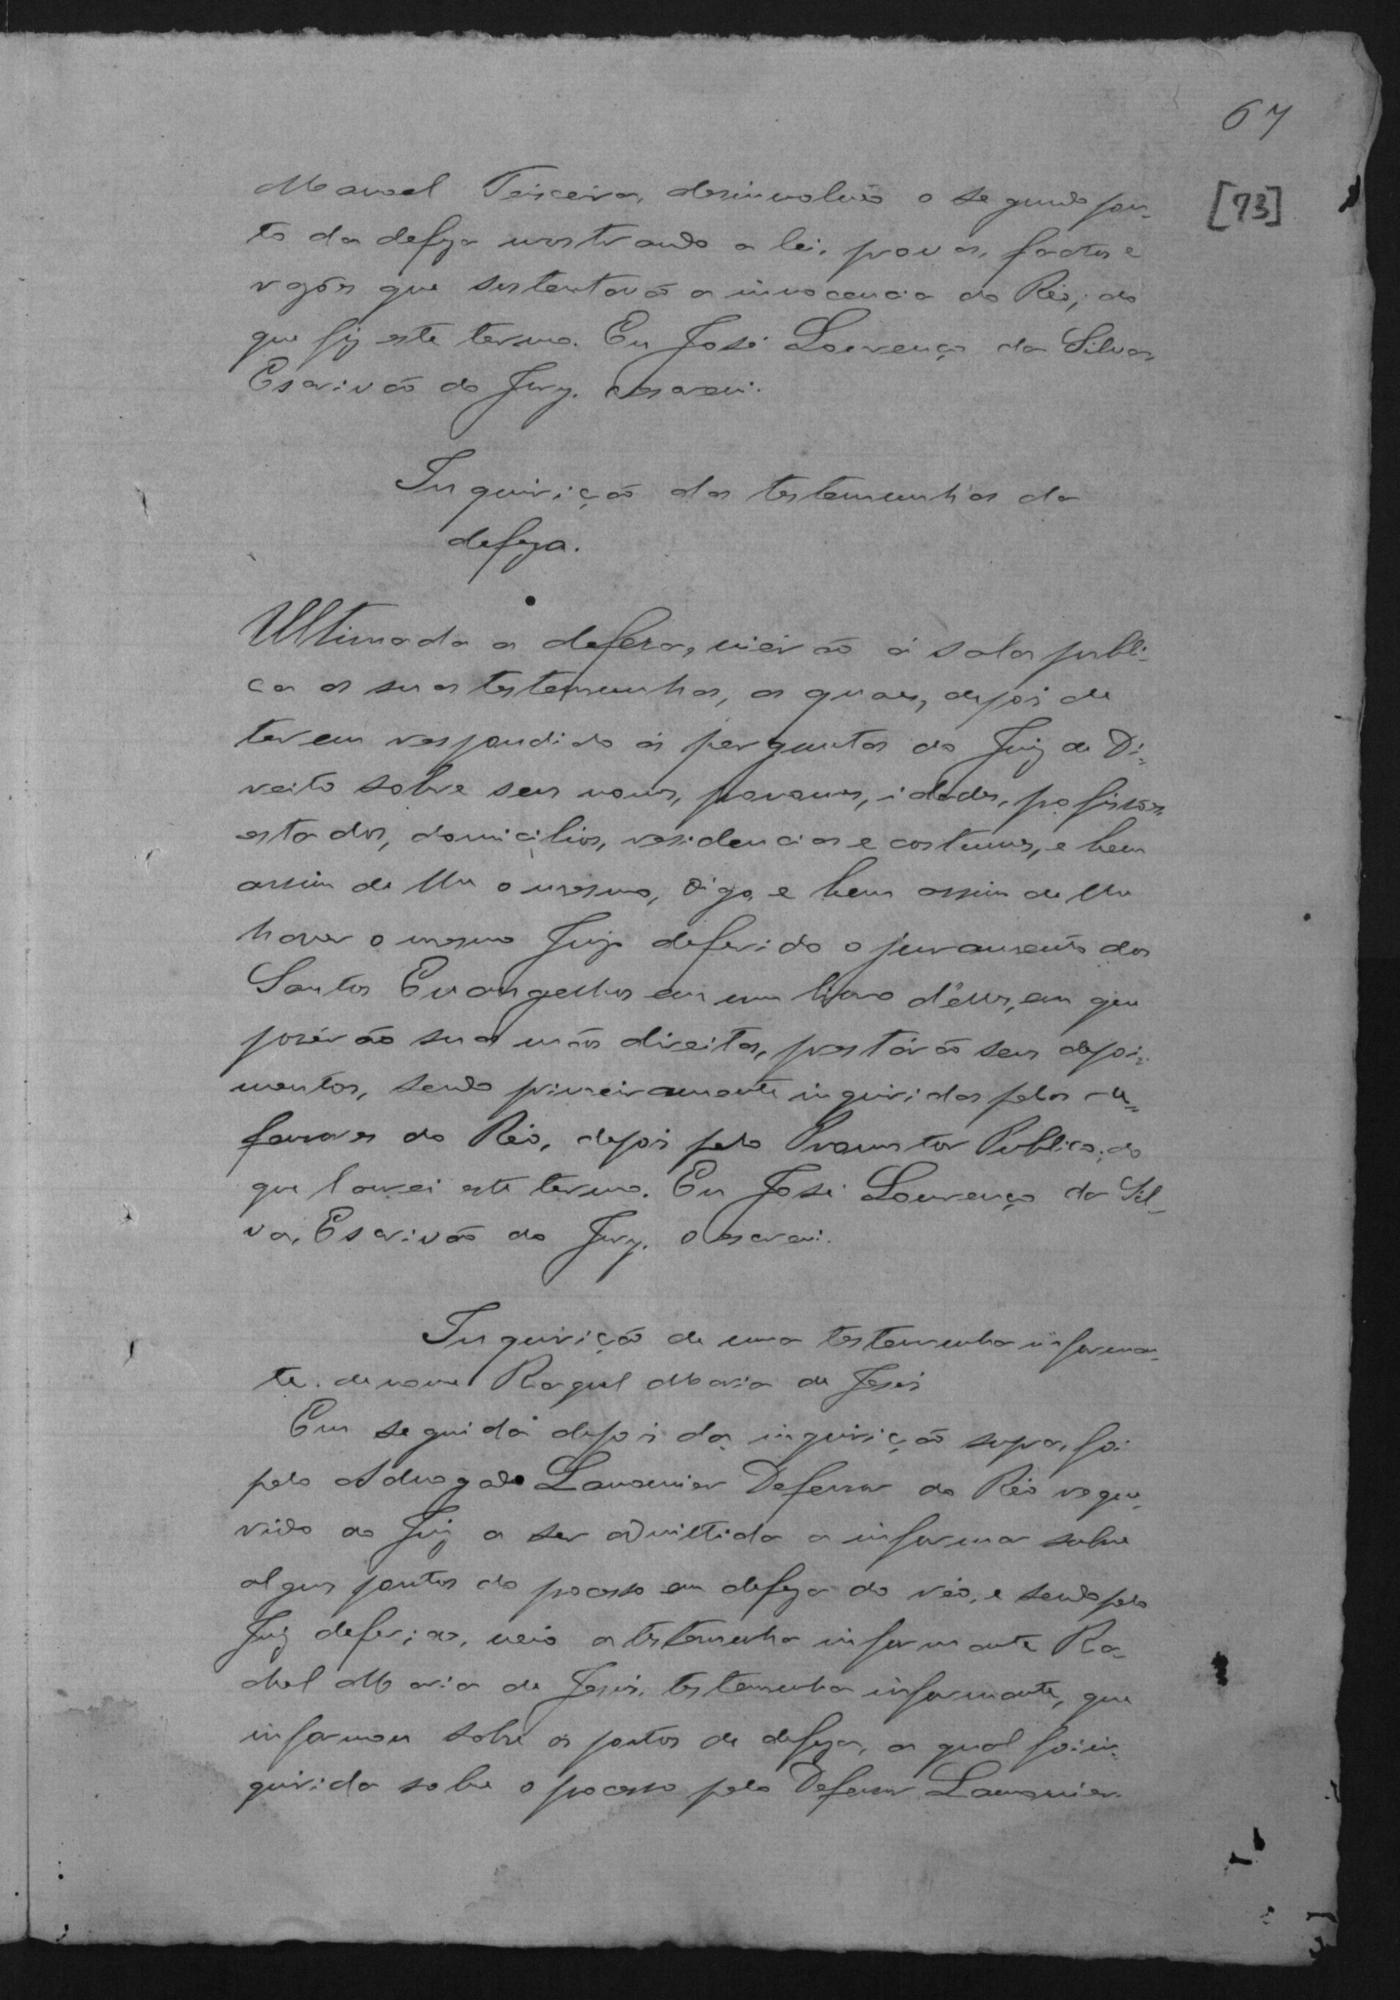 67
[73]
Manoel Teixeira, desinvolveo o segundo pon-
to da defeza mostrando a lei, provas, factos e
razões que sustentavão a innocencia do Réo; do
que fiz este termo. Eu José Lourenço da Silva,
Escrivão do Jury. escrevi.
Inquirição das testemunhas da
defeza.
Ultimada a defeza, vierão á sala publi-
ca as suas testemunhas, as quaes, depois de
terem respondido ás perguntas do Juiz de Di-
reito sobre seus nomes, pronomes, idades, profissões,
estados, domicilios, residencias e costumes, e bem
assim de lhe o mesmo, digo, e bem assim de lhe
haver o mesmo Juiz deferido o juramento dos
Santos Evangelhos em um livro d'elles, em que
poserão suas mãos direitas, prestárão seus depoi-
mentos, sendo primeiramente inquiridas pelos de-
fensores do Réo, depois pelo Promotor Publico; do
que lavrei este termo. Eu José Lourenço da Sil-
va, Escrivão do Jury. o escrevi.
Inquirição de uma testemunha informan-
te. de nome Raquel Maria de Jesus
Em seguida depois da inquirição supra, foi
pelo Advogado Defensor do Réo reque-
rido ao Juiz a ser admittida a informar sobre
alguns pontos do processo em defeza do réo, e sendo pelo
Juiz deferido, veio a testemunha informante Ra-
chel Maria de Jesus, testemunha informante, que
informou sobre os pontos de defeza, a qual foi in-
quirida sobre o processo pelo Defensor